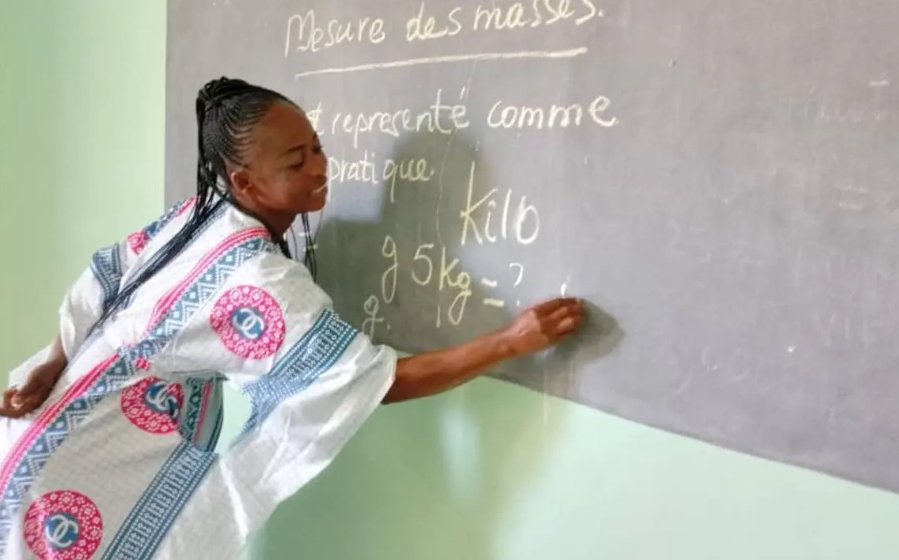 Mesure des masses.
représenté comme
pratique.
Kilo
g 5kg = ?
g.